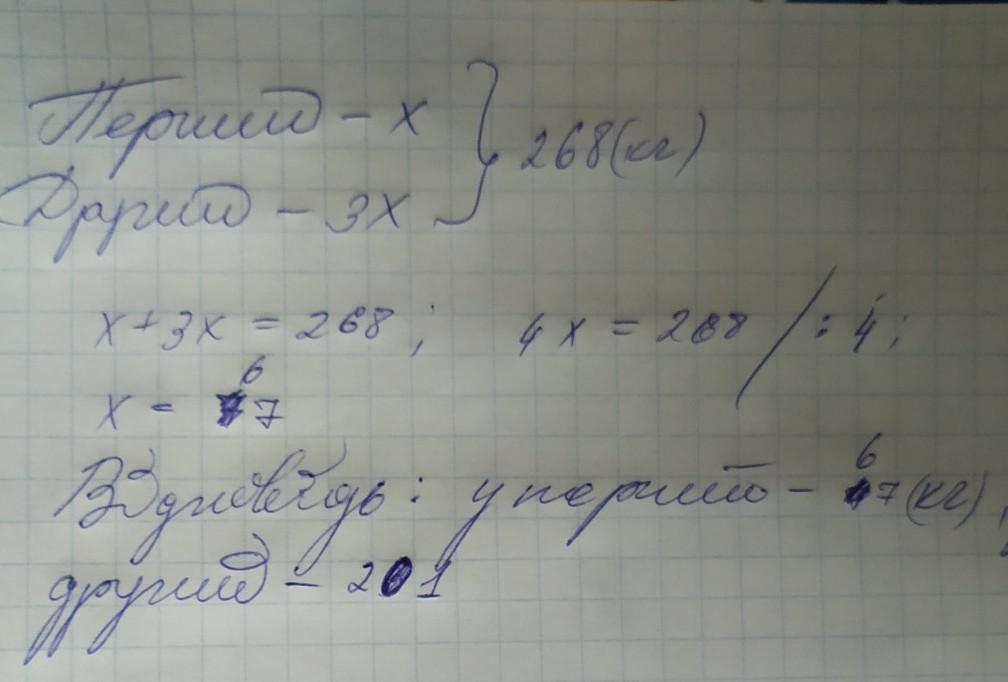 Перший - х
Другий - 3х } 268(кг)
х+3х = 268 ; 4х = 268 / : 4 ;
х = 67
Відповідь : у перший - 67 (кг),
другий - 201